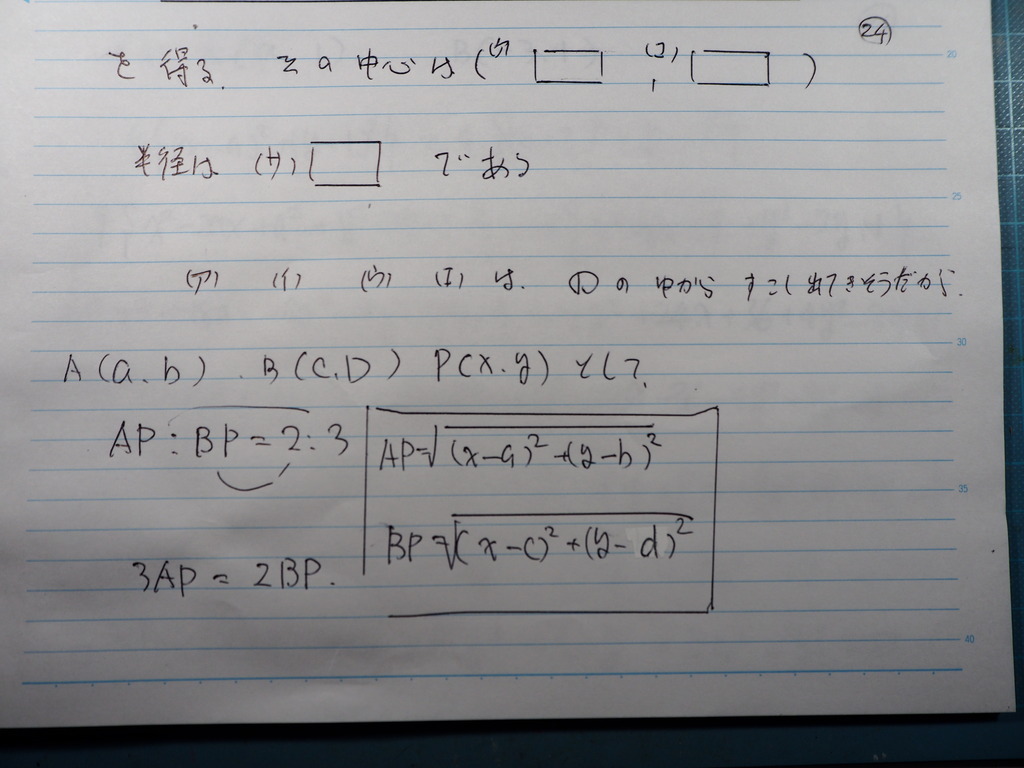 ㉔
を得る. その中心は((ウ) , (エ) )
半径は (オ) である
(ア) (イ) (ウ) (エ) は. の中から すこし出てきそうだから.
A(a.b) . B(C.D) P(x.y) として.
AP:BP=2:3
AP=√(x-a)²+(y-b)²
BP=√(x-c)²+(y-d)²
3AP = 2BP.